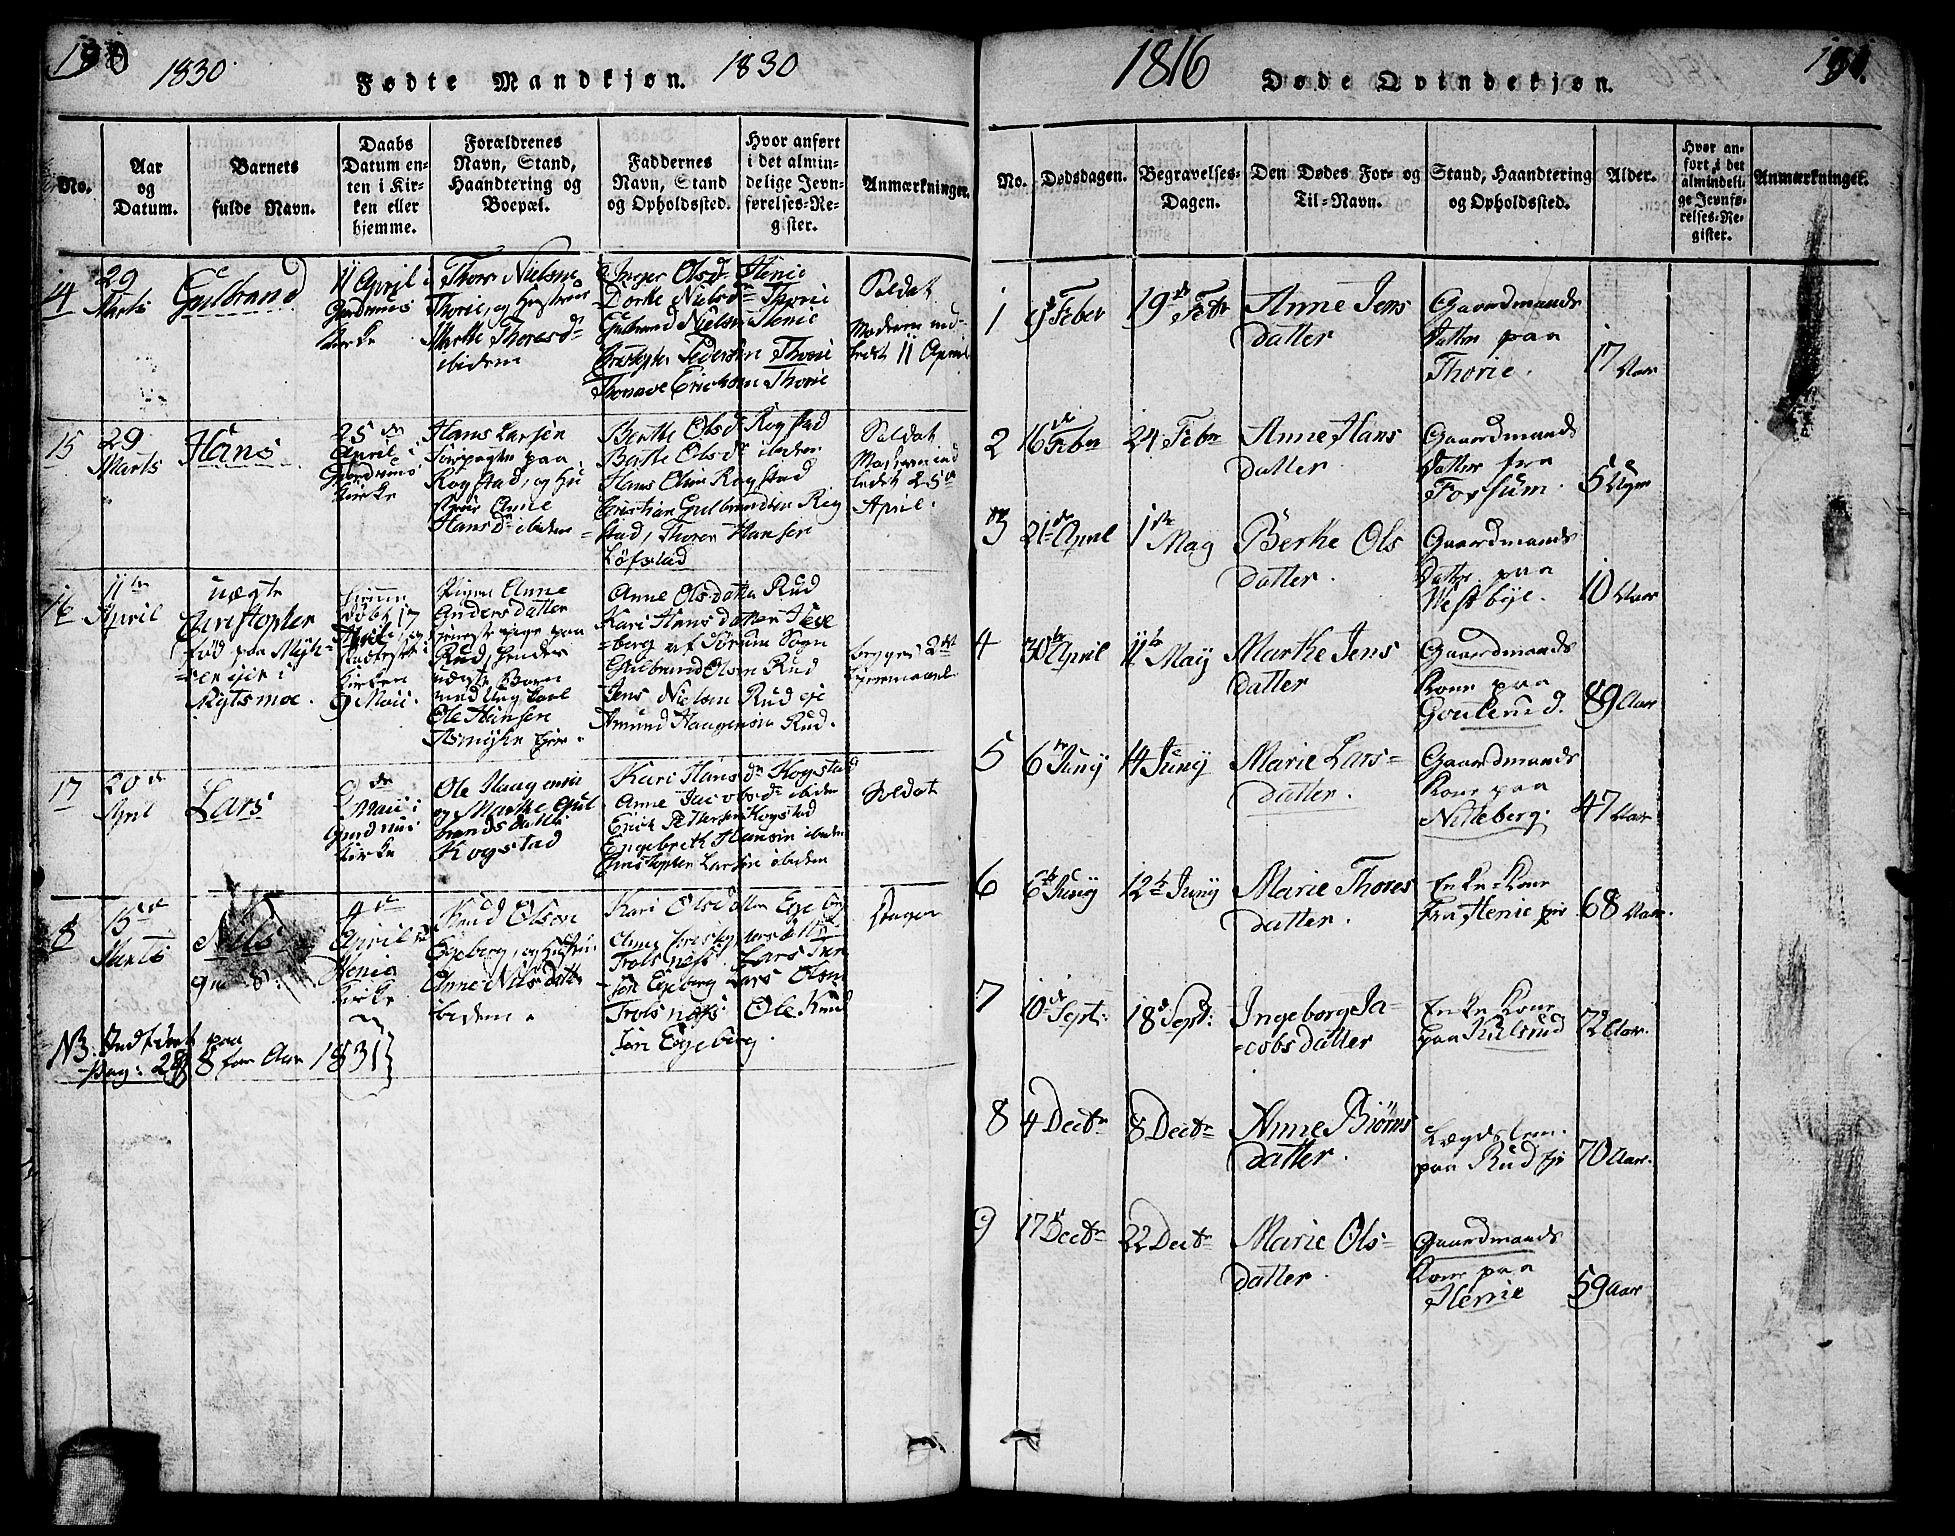 190
1830.
Fødte Mandkjøn.
1830
No.
Aar
og
Datum.
Barnets
fulde Navn.
Daabs
Datum en-
ten i Kir-
ken eller
hjemme.
Forældrenes
Navn, Stand,
Haandtering og
Boepæl.
Faddernes
Navn, Stand
og Opholdssted.
Hvor anført
i det almin-
delige Jevn-
førelses-Re-
gister.
Anmærkninger.
14
29
Marts
Gulbrand
11 April i
Kirke
Thore Nielsen
Thorie, og Hustrue
Marthe Thoresdr
ibidem
Inger Olsdr Henie
Dorthe Nielsdr Thorie
Gulbrand Nielsen Henie
Christopher Pedersen Thorie
Thorie
Soldat
Moderen ind-
ledt 11 April
15
29
Marts
Hans
25de
April i
Kirke
Hans Larsen
paa
Rogstad, og Hu
strue Anne
Hansdr ibidem
Berthe Olsdr Rogstad
Berthe Olsdr ibidem
Hans Olsen Rogstad
Cristian Gulbrandsen Rog
stad, Thorer Hansen
Løfstad
Soldat
Moderen ind
ledt 25de
April.
16
11te
April
uægte
Christopher
fød paa
i
døbt 17
April, og
i
Kirken
9 Maii.
Pigen Anne
Anders datter
paa
Rud, hendes
uægte Barn
med
Ole Hansen
Anne Olsdatter Rud
Kari Hansdatter
berg af Sørum Sogn
Gulbrand Olsen Rud
Jens Nielsen Rud eje
Amund Haagensen Rud.
begges 2det
Leiermaal
17
20de
April
Lars
Maii i
Kirke
Ole Haagensen
og Marthe Gul
brandsdatter
Kogstad
Kari Hansdr Kogstad
Anne Jacobsdr ibidem
Erich Pettersen Kogstad
Engebreth Hansen ibidem
Christopher Larsen ibidem
Soldat
18
Marts
Nils
April
Henie
Kirke
Knud Olsen
Egeberg, og Hustru
Anne Nilsdatter
ibidem.
Kari Olsdatter Egeberg
Trolsnes. Lars Knud
sen Egeberg Lars Olsen
Trolsnæs Ole Knud
sen Egeberg.
NB. Indført paa
Pag: 288 for Aar 1831
1816
Døde Qvindekjøn.
191.
No.
Dødsdagen.
Begravelses-
Dagen.
Den Dødes For- og
Til-Navn.
Stand, Haandtering
og Opholdssted.
Alder.
Hvor an-
ført i det
almindeli-
ge Jevnfø-
relses-Re-
gister.
Anmærkninger.
1
9 Feber
19de Febr
Anne Jens
datter
Gaardmands
Datter paa
Thorie.
17 Aar
2
16de Febr
24 Febr
Anne Hans
datter.
Gaardmands
Datter fra
Forsum.
5 Uger
3
21de April
1ste May
Berthe Ols
datter.
Gaardmands
Datter paa
Westbye.
10 Aar
4
30te April
11te May
Marthe Jens
datter
Gaardmands
Kone paa
Goulerud.
89 Aar
5
6te Juny
14 Juny
Marie Lars-
datter.
Gaardmands
Kone paa
Nitteberg.
47 Aar
6
6te Juny
12te Juny
Marie Thores
datter.
Enke-Kone
fra Henie eje
68 Aar.
7
10de Sept:
18de Sept:
Ingeborg Ja-
cobsdatter
Enke Kone
paa Kulsrud
72 Aar.
8
4 Decbr
8 Decbr
Anne Biørns
datter.
Lægdslem
paa Rud eje
70 Aar.
9
17de Decbr
22 Decbr
Marie Ols-
datter.
Gaardmands
Kone paa
Henie
59 Aar